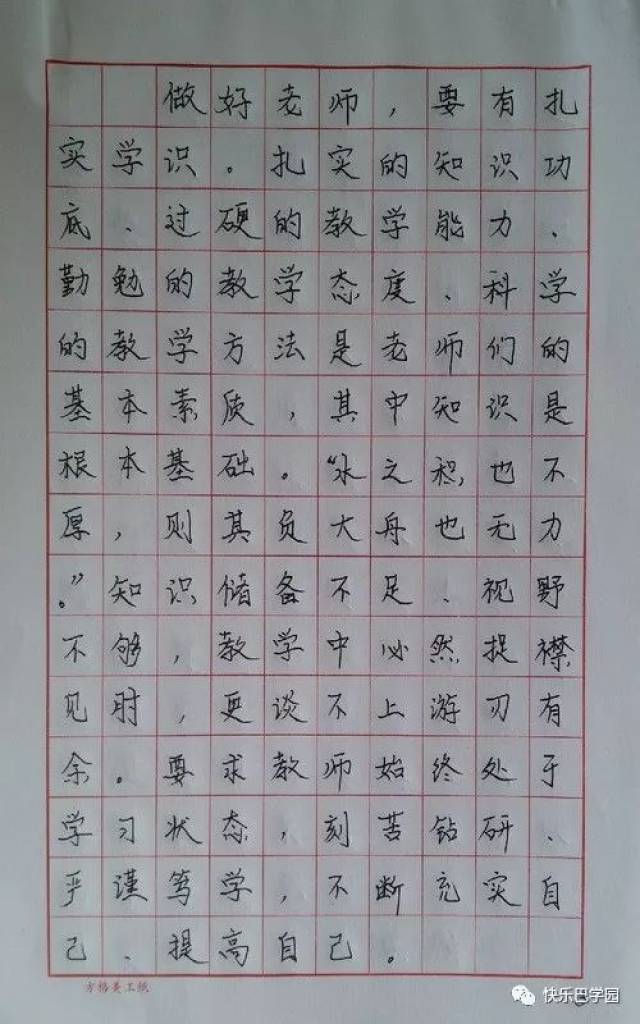 做好老师，要有扎
实学识。扎实的知识功
底、过硬的教学能力、
勤勉的教学态度、科学
的教学方法是老师们的
基本素质，其中知识是
根本基础。“水之积也不
厚，则其负大舟也无力
。”知识储备不足、视野
不够，教学中必然捉襟
见肘，更谈不上游刃有
余。要求教师始终处于
学习状态，刻苦钻研、
严谨笃学，不断充实自
己、提高自己。
方格美工纸
快乐巴学园